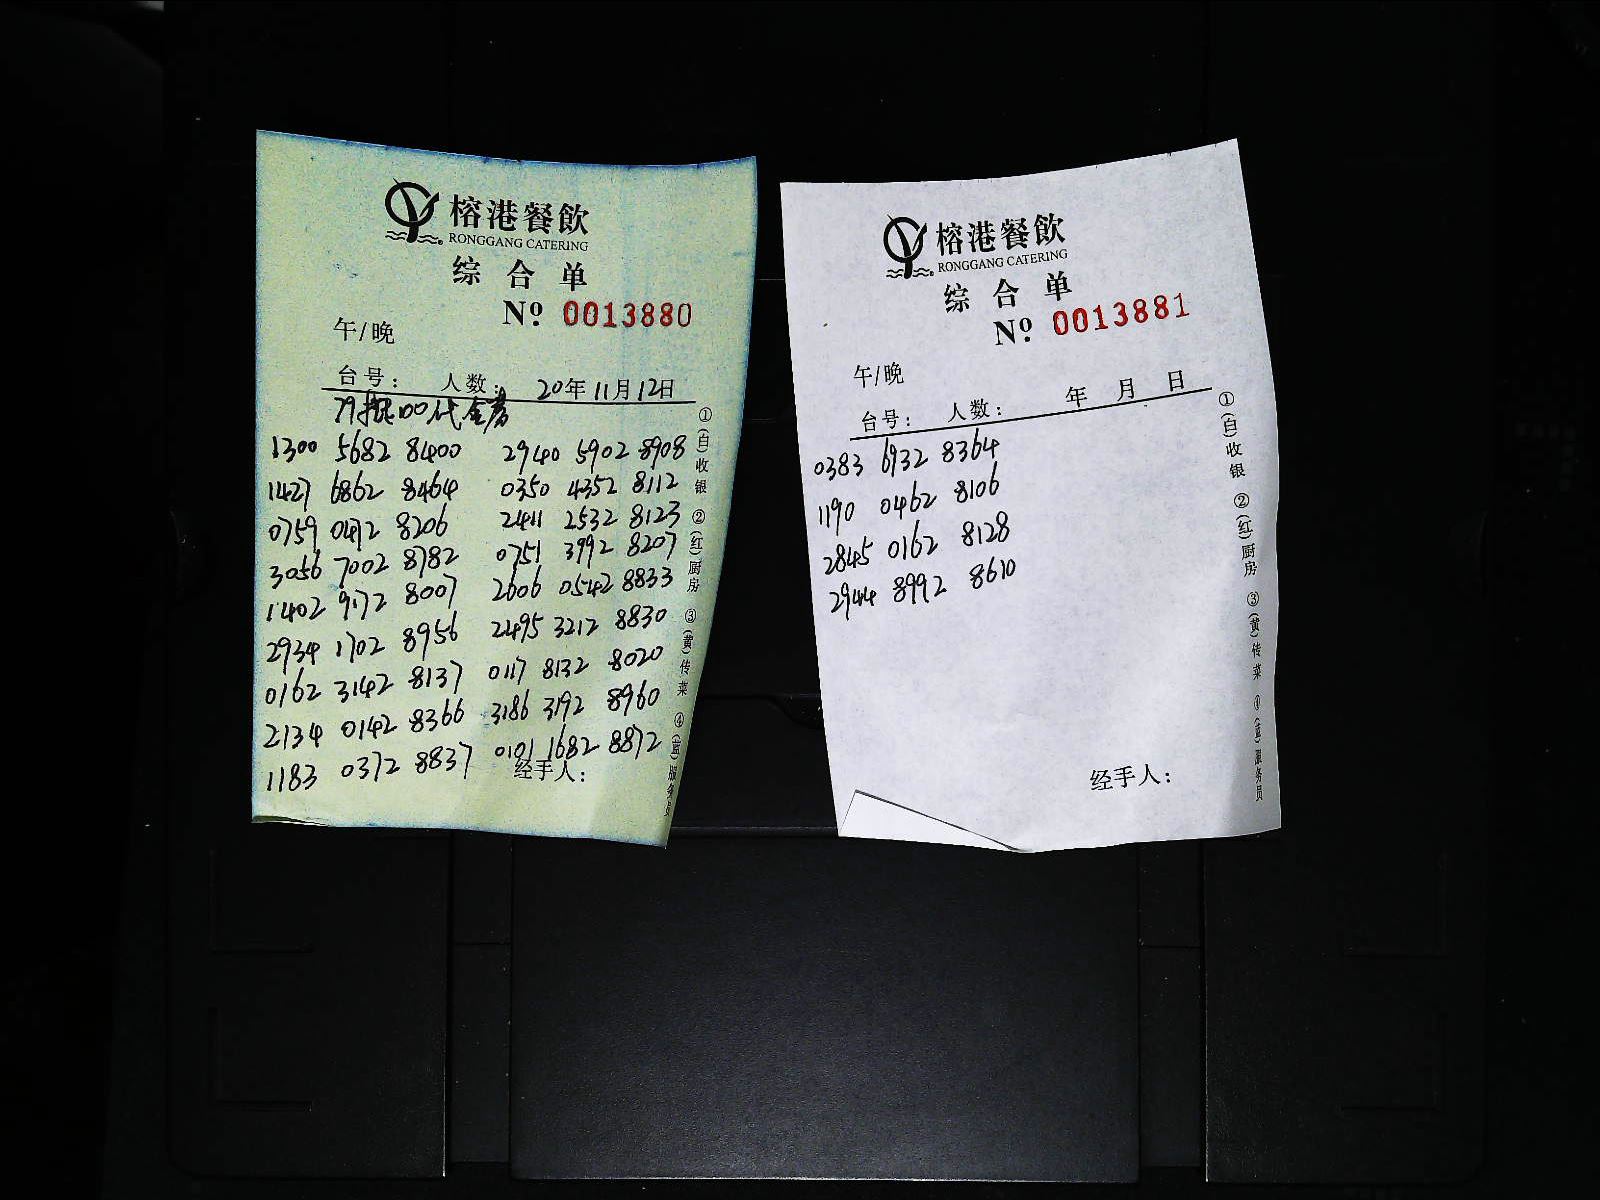 榕港餐飲
RONGGANG CATERING
综合单
Nº 0013880
午/晚
台号: 人数: 20年11月12日
79抵100代金券
1300 5682 8400 2940 5902 8908
1427 6862 8464 0350 4352 8112
0759 0472 8206 2411 2532 8123
3056 7002 8782 0751 3992 8207
1402 9172 8007 2606 0542 8833
2934 1702 8956 2495 3212 8830
0162 3142 8137 0117 8132 8020
2134 0142 8366 3186 3192 8960
1183 0372 8837 0101 1682 8872
经手人:
①(白)收银 ②(红)厨房 ③(黄)传菜 ④(蓝)服务员
榕港餐飲
RONGGANG CATERING
综合单
Nº 0013881
午/晚
台号: 人数: 年 月 日
0383 6932 8364
1190 0462 8106
2845 0162 8128
2944 8992 8610
经手人:
①(白)收银 ②(红)厨房 ③(黄)传菜 ④(蓝)服务员